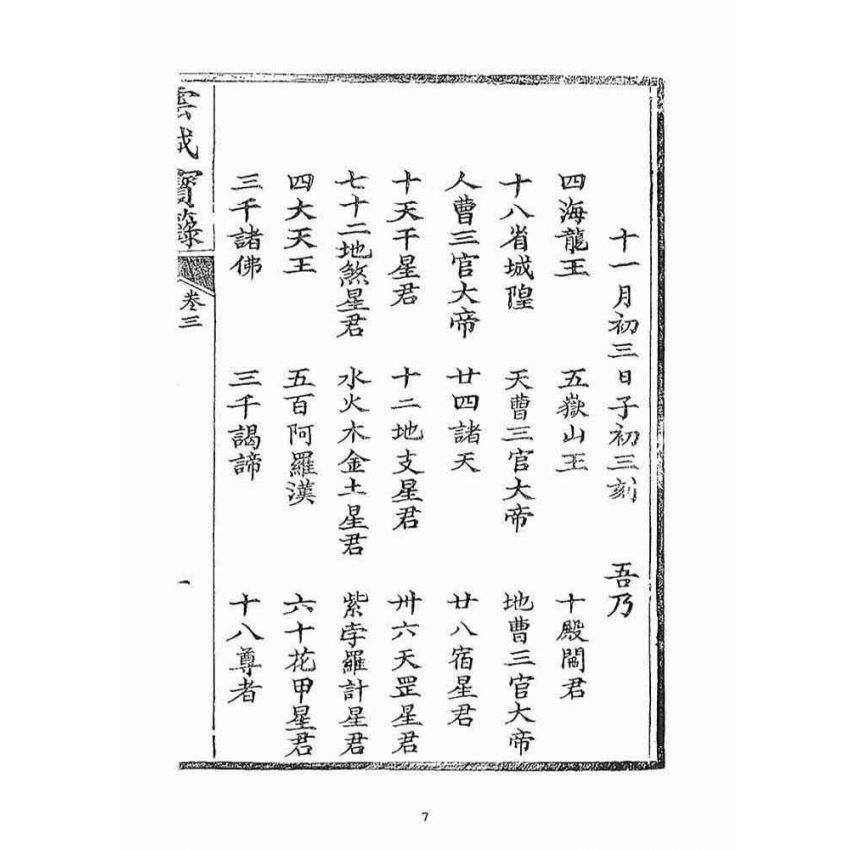 十一月初三日子初三刻 吾乃
四海龍王 五嶽山王 十殿閻君
十八省城隍 天曹三官大帝 地曹三官大帝
人曹三官大帝 廿四諸天 廿八宿星君
十天干星君 十二地支星君 卅六天罡星君
七十二地煞星君 水火木金土星君 紫孛羅計星君
四大天王 五百阿羅漢 六十花甲星君
三千諸佛 三千謁諦 十八尊者
雲城寶籙 卷三 一
7